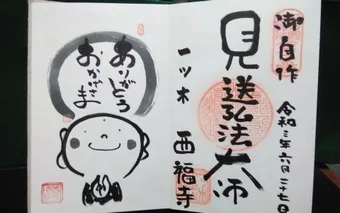 御自作
見送弘法大師
令和三年六月二十七日
一ツ木 西福寺
ありがとう
おかげさま